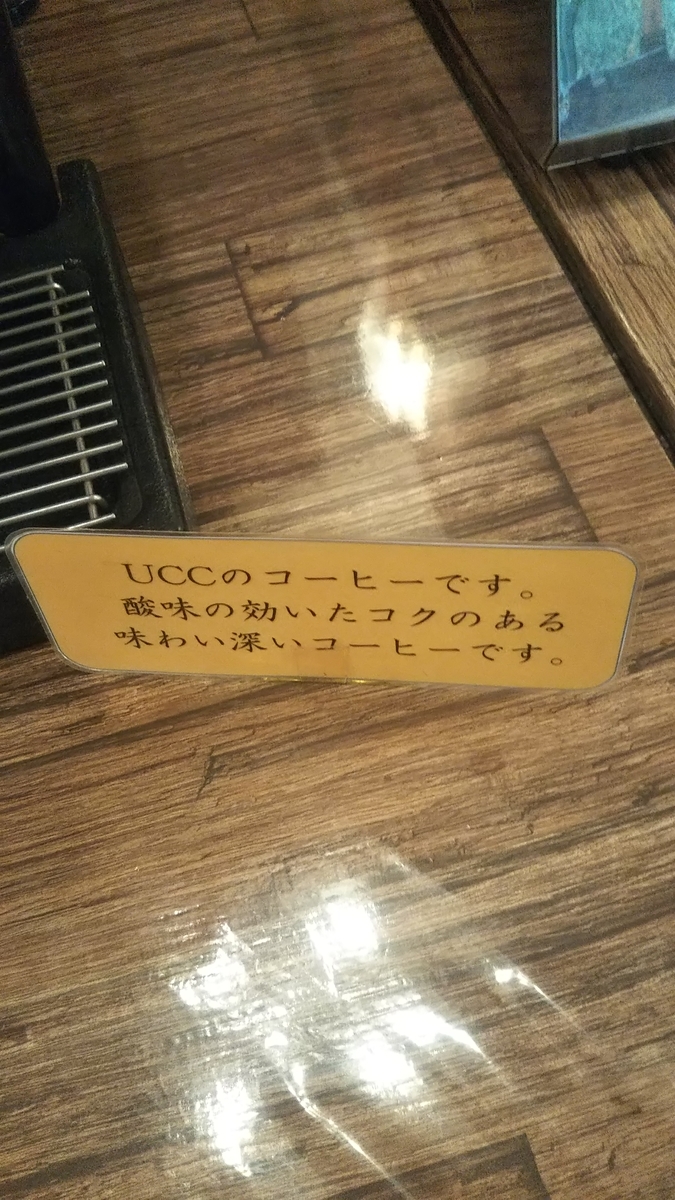 UCCのコーヒーです。
酸味の効いたコクのある
味わい深いコーヒーです。